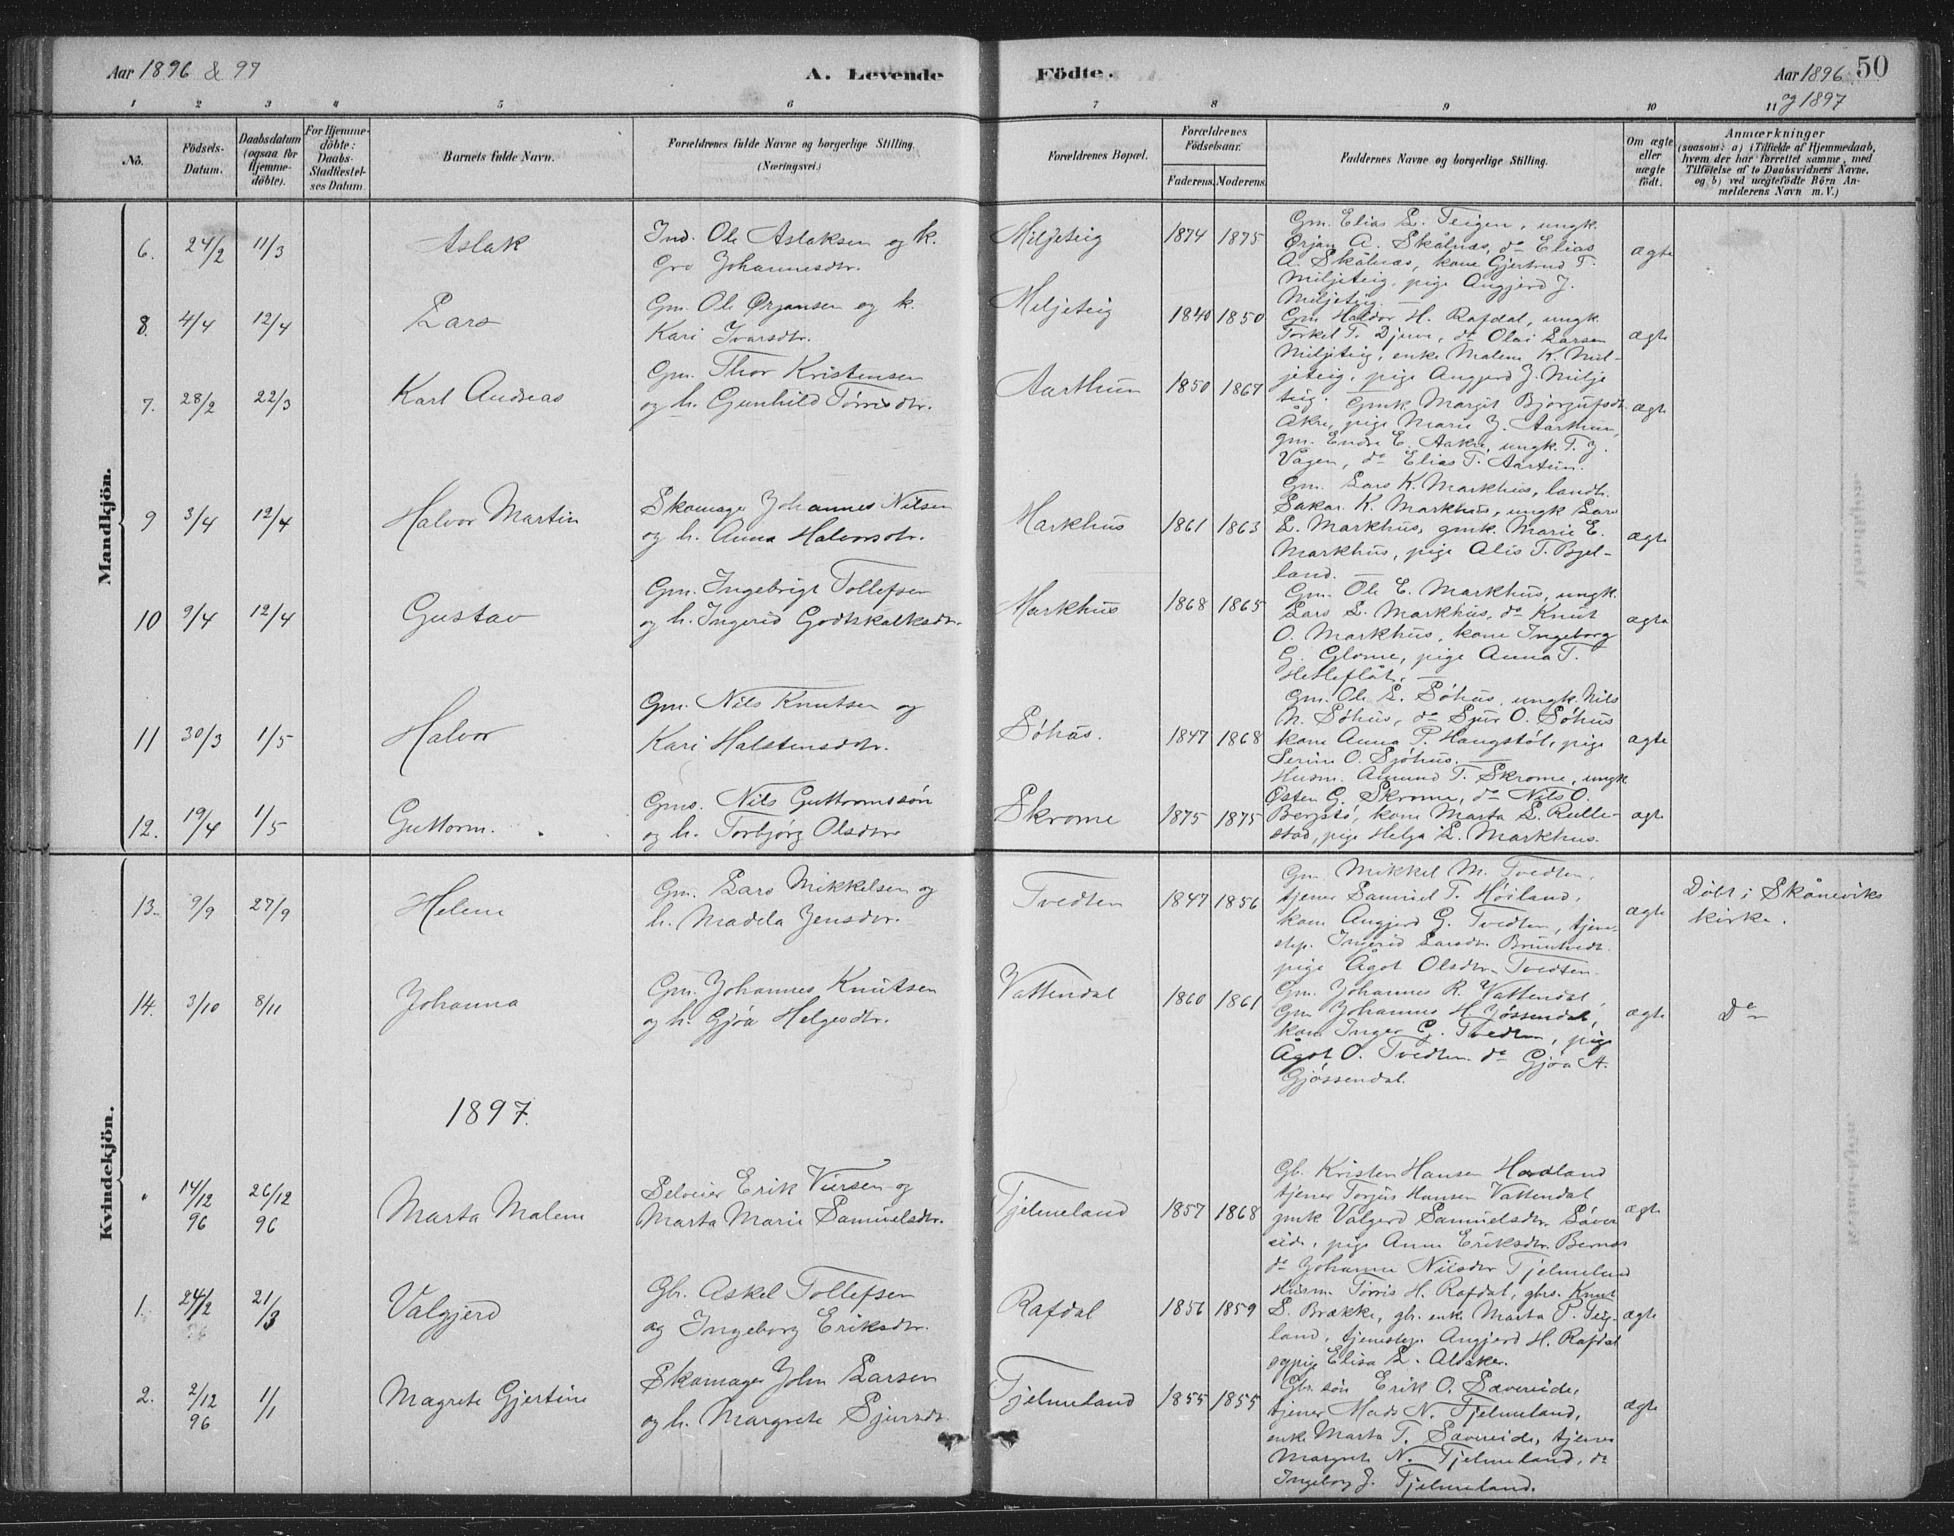 Aar 1896 & 97
A. Levende Födte.
Aar 1896 og 1897
50
1 2 3 4 5 6 7 8 9 10 11
No.
Födsels-Datum.
Daabsdatum (ogsaa for Hjemmedöbte).
For Hjemmedöbte: Daabs-Stadfæstelses Datum.
Barnets fulde Navn.
Forældrenes fulde Navne og borgerlige Stilling.
(Næringsvei.)
Forældrenes Bopæl.
Forældrenes Födselsaar.
Faderens. Moderens.
Faddernes Navne og borgerlige Stilling.
Om ægte eller uægte født.
Anmærkninger
(saasom: a) i Tilfælde af Hjemmedaab, hvem der har forrettet samme, med Tilföielse af to Daabsvidners Navne. og b) ved uægtefödte Börn Anmelderens Navn m. V.)
Mandkjön.
6. 24/2 11/3 Aslak
Ind. Ole Aslaksen og k.
Gro Johannesdtr.
Miljeteig 1874 1875
Gm. Elias L. Teigen, ungk.
Ørjan A. Skålnæs, do Elias
A. Skålnæs, kone Gjertrud T.
Miljeteig, pige Angjerd J.
Miljeteig.
ægte
8. 4/4 12/4 Lars
Gm. Ole Ørjansen og k.
Kari Ivarsdtr.
Miljeteig 1840 1850
Gm. Haldor H. Rafdal, ungk.
Torkel T. Djuve, do Olai Larsen
Miljeteig, enke Malene K. Mil-
jeteig, pige Angjerd J. Milje
teig.
ægte
7. 28/2 22/3 Karl Andreas
Gm. Thor Kristensen
og h. Gunhild Tørrisdtr.
Aarthun 1850 1867
Gmk Margit Bjørgufsdtr.
Åkre, pige Marie J. Aarthun,
gm. Endre E. Aakre, ungk. T. J.
Vågen, do Elias T. Aartun.
ægte
9 3/4 12/4 Halvor Martin
Skomager Johannes Nilsen
og h. Anna Halvorsdtr.
Markhus 1861 1863
Gm. Lars K. Markhus, landh.
Sakar. K. Markhus, ungk Lars
L. Markhus, gmk. Marie E.
Markhus, pige Alis T. Bjel-
land.
ægte
10 9/4 12/4 Gustav
Gm. Ingebrigt Tollefsen
og h. Ingerid Godtskalksdtr.
Markhus 1868 1865
Gm. Ole E. Markhus, ungk.
Lars L. Markhus, do Knut
O. Markhus, kone Ingeborg
G. Glome, pige Anna T.
Hetleflåt.
ægte
11 30/3 1/5 Halvor
Gm. Nils Knutsen og
Kari Halstensdtr.
Söhus. 1847 1868
Gm. Ole L. Söhus, ungk. Nils
N. Söhus, do Sjur O. Söhus
kone Anna P. Haugstöl, pige
Serine O. Sjöhus.
ægte
12. 19/4 1/5 Guttorm.
Gms. Nils Guttormssön
og h. Torbjörg Olsdtr
Skrome 1875 1875
Husm. Amund T. Skrome, ungk
Østen G. Skrome, do Nils O.
Bergstö, kone Marta L. Rulle-
stad, pige Helga L. Markhus.
ægte
Kvindekjön.
13. 9/9 27/9 Helene
Gm. Lars Mikkelsen og
h. Madela Jensdtr.
Tvedten 1847 1856
Gm. Mikkel M. Tvedten,
tjener Samuel T. Höiland,
kone Angjerd G. Tvedten, tjene-
step. Ingerid Larsdtr. Bruntvedt.
pige Ågot Olsdtr. Tvedten.
ægte
Döbt i Skånevik
kirke.
14. 3/10 8/11 Johanna
Gm. Johannes Knutsen
og h. Gjöa Helgesdtr.
Vattendal 1860 1861
Gm. Johannes R. Vattendal,
Gm Johannes H. Jøssendal,
kone Inger G. Tvedten, pige
Ågot O. Tvedten do Gjöa A.
Gjössendal.
ægte
Do
1897.
" 14/12 96 26/12 96 Marta Malene
Selveier Erik Viersen og
Marta Marie Samuelsdtr.
Tjelmeland 1857 1868
Gb. Kristen Hansen Hordland
tjener Torjus Hansen Vattendal
gmk Valgerd Samuelsdtr. Säver
eide, pige Anna Eriksdtr. Bernes
do Johanne Nilsdtr Tjelmeland
ægte
1. 24/2 21/3 Valgjerd
Gbr. Askel Tollefsen
og Ingeborg Eriksdtr.
Rafdal 1856 1859
Husm. Törris H. Rafdal, gbrs. Knut
S. Brække, gbr. enke Marta P. Teig-
land, tjenestep. Angjerd H. Rafdal
og pige Elisa L. Alsaker.
ægte
2. 2/12 96 1/1 Magrete Gjertine
Skomager John Larsen
og h. Margrete Sjursdtr
Tjelmeland 1855 1855
Gbr. sön Erik O. Sævereide,
tjener Mads N. Tjelmeland,
enke Marta T. Sævereide, tjener
Margrete N. Tjelmeland, do
Ingeborg J. Tjelmeland.
ægte